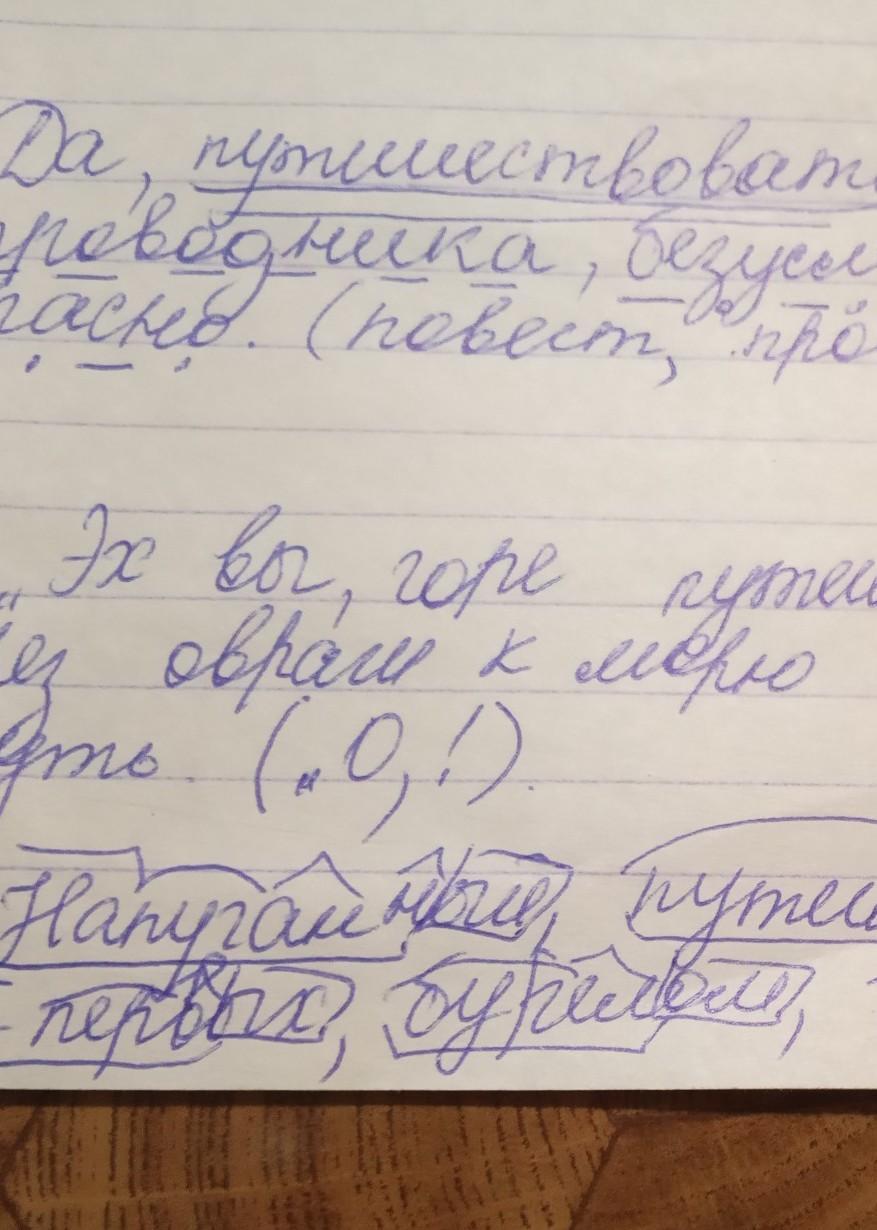 Да, путешествоват
роводника, безусл
пасно. (повест, про
„Эх вы, горе путеш
ез овраги к морю
уть. („О, !).
Напуганный, путеш
первых, бу